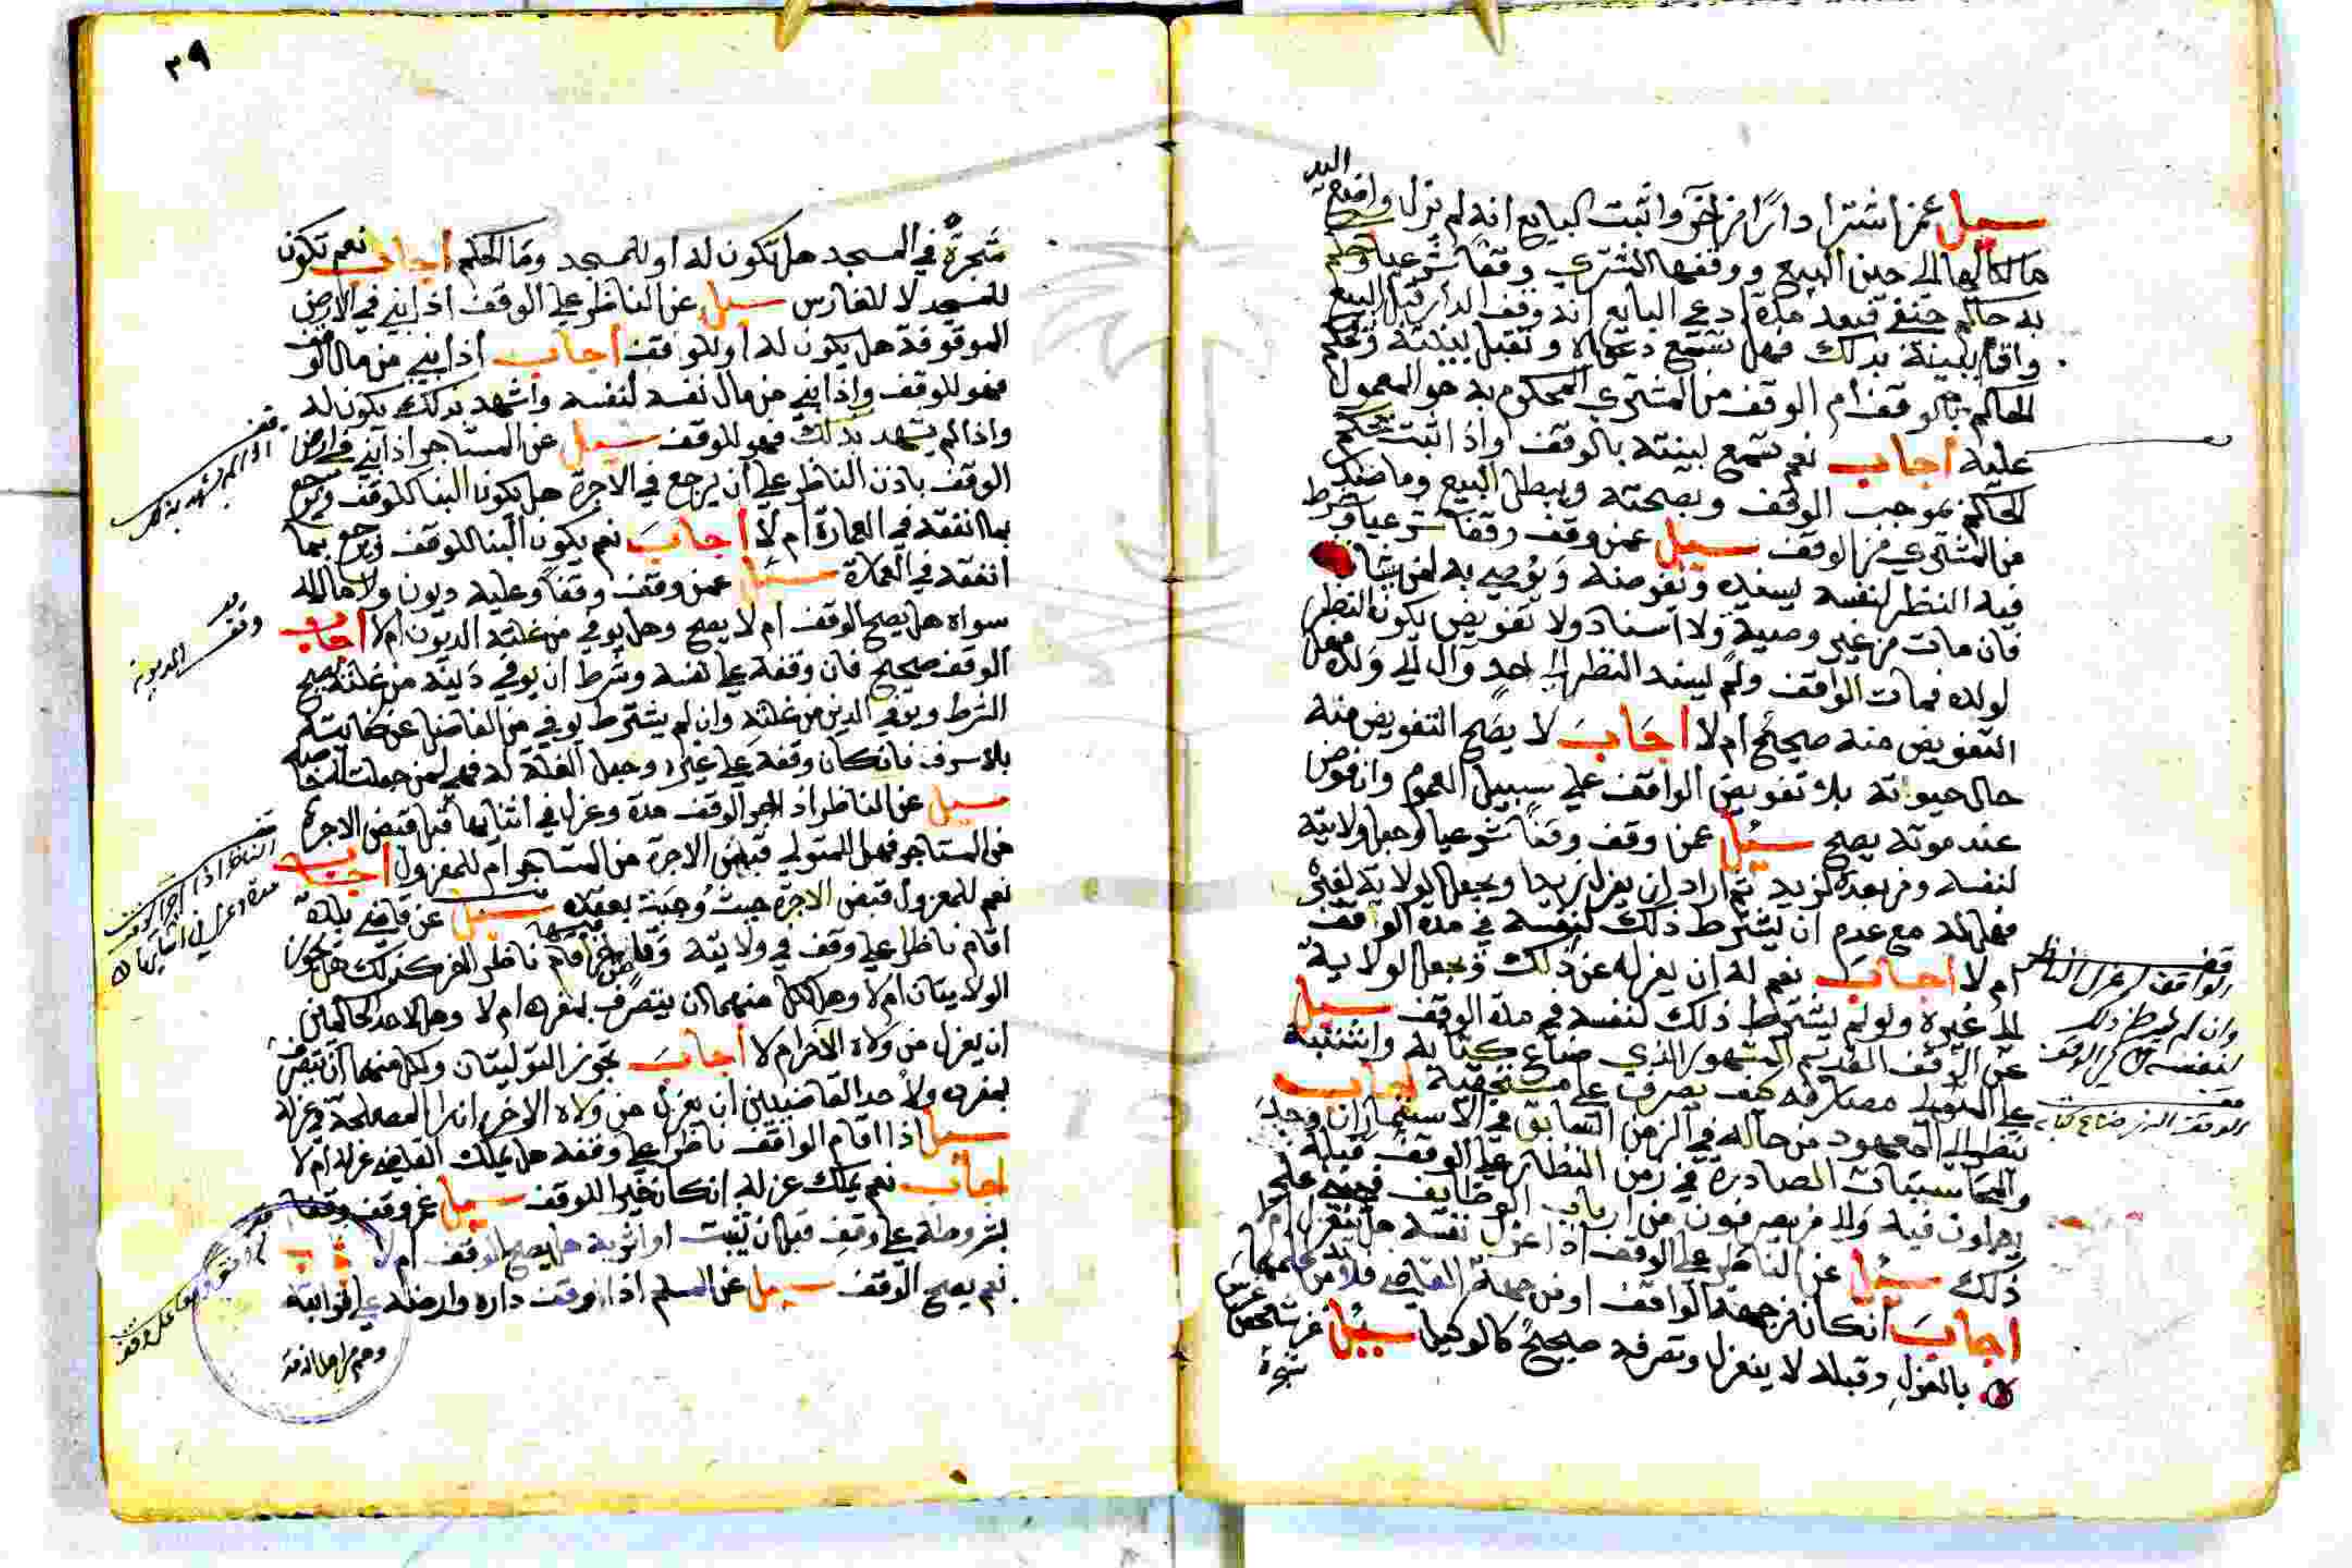 سيل عمن اشترا دارًا من اخر واثبت البايع انه لم تزل واضع اليد
مالكا لها الى حين البيع ووقفها المشتري وقفا شرعيا وحكم
به حاكم حنفي فبعد مدة ادعى البايع انه وقف الدار قبل البيع
واقام بينة بذلك فهل تسمع دعواه وتقبل بينته ويحكم
الحاكم بالوقف ام الوقف من المشتري المحكوم به هو المعمول
عليه اجاب نعم تسمع لبينته بالوقف واذا اثبت يحكم
الحاكم بموجب الوقف وبصحته ويبطل البيع وما صدر
من المشتري من الوقف سيل عمن وقف وقفا شرعيا وشرط
فيه النظر لنفسه يسنده ويفوضه ويوصي به لمن شا
فان مات من غير وصية ولا اسناد ولا تفويض يكون النظر
لولده فمات الواقف ولم يسند النظر الى احد وآل الى ولده فهل
التفويض منه صحيح ام لا اجاب لا يصح التفويض منه
حال حيوته بلا تفويض الواقف على سبيل العموم وان فوض
عند موته يصح سيل عمن وقف وقفا شرعيا وجعل ولايته
لنفسه ومن بعده لزيد ثم اراد ان يعزل زيدا ويجعل الولاية لغيره
فهل له مع عدم ان يشترط ذلك لنفسه في مدة الواقف
ام لا اجاب نعم له ان يعزله عن ذلك ويجعل الولاية
الى غيره ولو لم يشترط ذلك لنفسه في مدة الوقف سيل
عن الوقف القديم المشهور الذي ضاع كتابه واشتبه
على المتولي مصارفه كيف يصرف على مستحقيه اجاب
ينظر الى المعهود من حاله في الزمن السابق في الاستيجار ان وجد
والمحاسبات الصادرة في زمن النظار على الوقف قبله
يعملون فيه ولمن يصرفون من ارباب الوظايف فيبني على
ذلك سيل عن الناظر على الوقف اذا عزل نفسه هل ينعزل ام لا
اجاب ان كان من جهة الواقف او من جهة القاضي فلا بد من علمهما
بالعزل وقبله لا ينعزل وتصرفه صحيح كالوكيل سيل عن شخص غرس
شجرة
الواقف له عزل الناظر
وان لم يشترط ذلك
لنفسه في الوقف
الوقف الذي ضاع كتابه
٣٩
شجرة في المسجد هل تكون له او للمسجد وما الحكم اجاب نعم تكون
للمسجد لا للغارس سيل عن الناظر على الوقف اذا بني في الارض
الموقوفة هل يكون له او للواقف اجاب اذا بني من مال الوقف
فهو للوقف واذا بني من مال نفسه لنفسه واشهد بذلك يكون له
واذا لم يشهد بذلك فهو للوقف سيل عن المستاجر اذا بني في ارض
الوقف باذن الناظر على ان يرجع في الاجرة هل يكون البنا للوقف ويرجع
بما انفقه في العمارة ام لا اجاب نعم يكون البنا للوقف ويرجع بما
انفقه في العمارة سيل عمن وقف وقفا وعليه ديون ولا مال له
سواه هل يصح الوقف ام لا يصح وهل يوفي من غلته الديون ام لا اجاب
الوقف صحيح فان وقفه على نفسه وشرط ان يوفي دينه من غلته يصح
الشرط ويوفي الدين من غلته وان لم يشترط يوفي من الفاضل عن كفايته
بلا سرف فان كان وقفه على غيره وجعل الغلة له فهي لمن جعلت له خاصة
سيل عن الناظر اذا اجر الوقف مدة وعزل في اثنايها قبل قبض الاجرة
من المستاجر فهل للمتولي قبض الاجرة من المستاجر ام للمعزول اجاب
نعم للمعزول قبض الاجرة حيث وجبت بعقده سيل عن قاضي بلدة
اقام ناظرا على وقف في ولايته وقاض اخر اقام ناظر اخر كذلك هل تجوز
الولايتان ام لا وهل لكل منهما ان يتصرف بمفرده ام لا وهل لاحد الحاكمين
ان يعزل من ولاه الاخر ام لا اجاب تجوز التوليتان ولكل منهما ان يتصرف
بمفرده ولاحد القاضيين ان يعزل من ولاه الاخر ان را المصلحة في عزله
سيل اذا اقام الواقف ناظرا على وقفه هل يملك القاضي عزله ام لا
اجاب نعم يملك عزله ان كان خيرا للوقف سيل عن وقف وقفا
بشروطه على وقف قبل ان يثبت هل يصح الوقف ام لا
نعم يصح الوقف سيل عن المسلم اذا وقف داره وارضه على قرابته
وهم من اهل الذمة
اذا لم يشهد بذلك
وقف المديون
الناظر اذا اجر الوقف
مدة وعزل في اثنايها